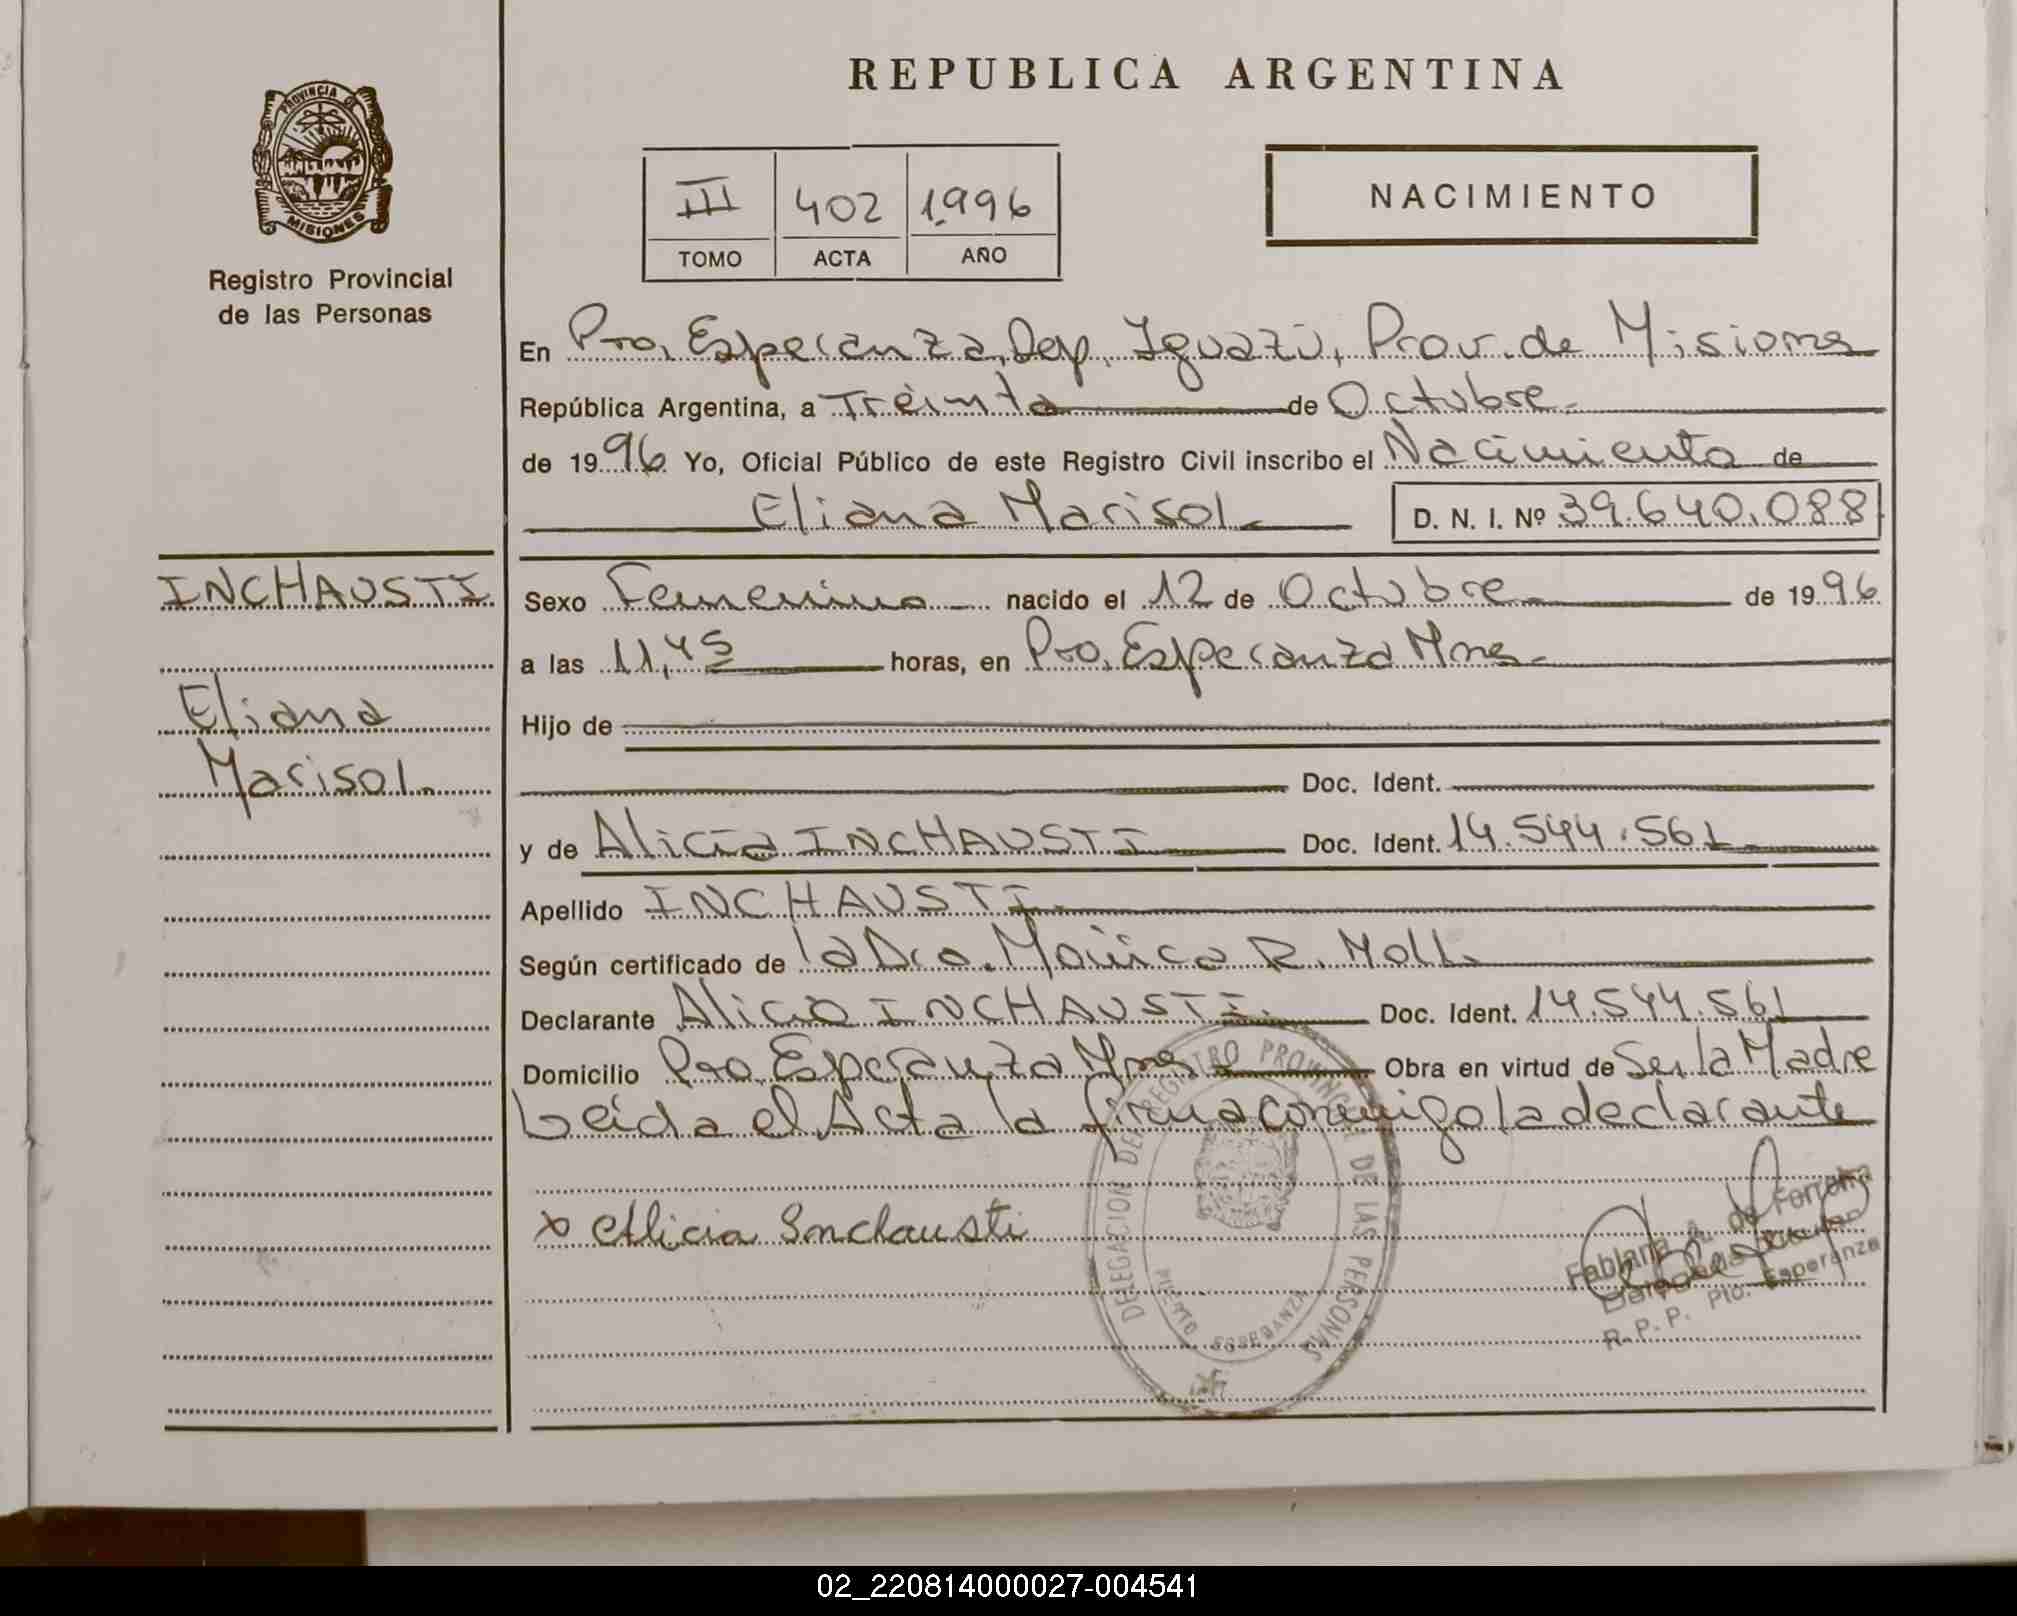 REPUBLICA ARGENTINA
PROVINCIA DE
MISIONES
Registro Provincial
de las Personas
III 402 1996
TOMO ACTA AÑO
NACIMIENTO
En Pto. Esperanza, Dep. Iguazú, Prov. de Misiones
República Argentina, a Treinta de Octubre.
de 1996 Yo, Oficial Público de este Registro Civil inscribo el Nacimiento de
Eliana Marisol D. N. I. Nº 39.640.088
INCHAUSTI
Eliana
Marisol.
Sexo Femenino nacido el 12 de Octubre de 1996
a las 11,45 horas, en Pto. Esperanza Mnes.
Hijo de
Doc. Ident.
y de Alicia INCHAUSTI Doc. Ident. 14.544.561
Apellido INCHAUSTI.
Según certificado de la Dra. Mónica R. Moll.
Declarante Alicia INCHAUSTI. Doc. Ident. 14.544.561
Domicilio Pto. Esperanza Mnes Obra en virtud de Ser la Madre
Leida el Acta la firma conmigo la declarante
x Alicia Inchausti
DELEGACION DEL REGISTRO PROVINCIAL DE LAS PERSONAS
PUERTO ESPERANZA
Fabiana de Ferreira
R. P. P. Pto. Esperanza
02_220814000027-004541